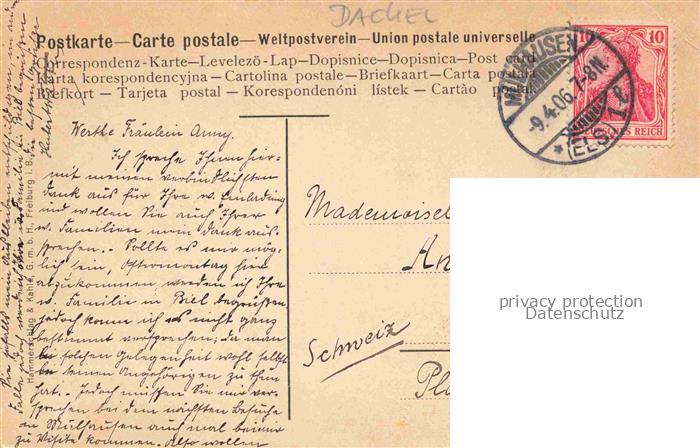 DACKEL
Postkarte — Carte postale — Weltpostverein — Union postale universelle
Correspondenz-Karte — Levelező-Lap — Dopisnice — Dopisnica — Post card
Karta korespondencyjna — Cartolina postale — Briefkaart — Carta postala
Brefkort — Tarjeta postal — Korespondenóni listek — Cartão postal
MÜLHAUSEN
-9.4.06. 7-8N.
* (ELS.) 1 e
10 10
DEUTSCHES REICH
Werthe Fräulein Anny.
Ich spreche Ihnen hier-
mit meinen verbindlichsten
Dank aus für Ihre w. Einladung
und wollen Sie auch Ihrer
w. Familien mein Dank aus-
sprechen. - Sollte es mir mög-
lich sein, Ostermontag hier
abzukommen, werden ich Ihre
w. Familie in Biel begrüßen,
jedoch kann ich es nicht ganz
bestimmt versprechen; da man
bei solchen Gelegenheit wohl selbst
bei seinen Angehörigen zu thun
hat. - Jedoch müssen Sie mir ver-
sprechen bei dem nächsten Besuche
in Mülhausen auch mal bei mir
zu Visite kommen. Also wollen
Sie mein Ausbleiben entschuldigen, in
Hammerschlag & Kahle, G. m. b. H., Freiburg i. B.
Mademoisel
An
Schweiz
Pl
privacy protection
Datenschutz